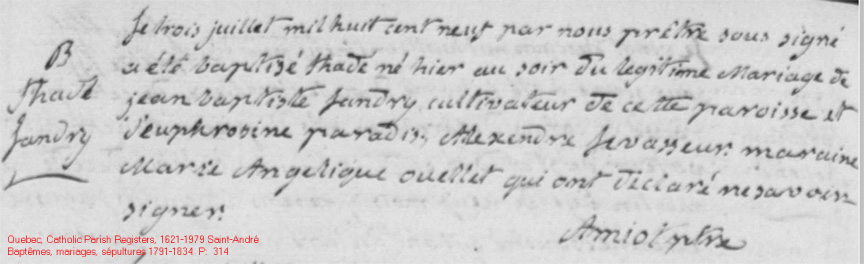 Le trois juillet mil huit cent neuf par nous prêtre sous signé
B
a été baptisé thade né hier au soir du legitime Mariage de
thade
jean baptiste Landry cultivateur de cette paroisse et
Landry
d'euphrosine paradis, Alexendre Levasseur maraine
Marie Angelique ouellet qui ont déclaré ne savoir
signer.
Amiot ptre
Quebec, Catholic Parish Registers, 1621-1979 Saint-André
Baptêmes, mariages, sépultures 1791-1834 P: 314